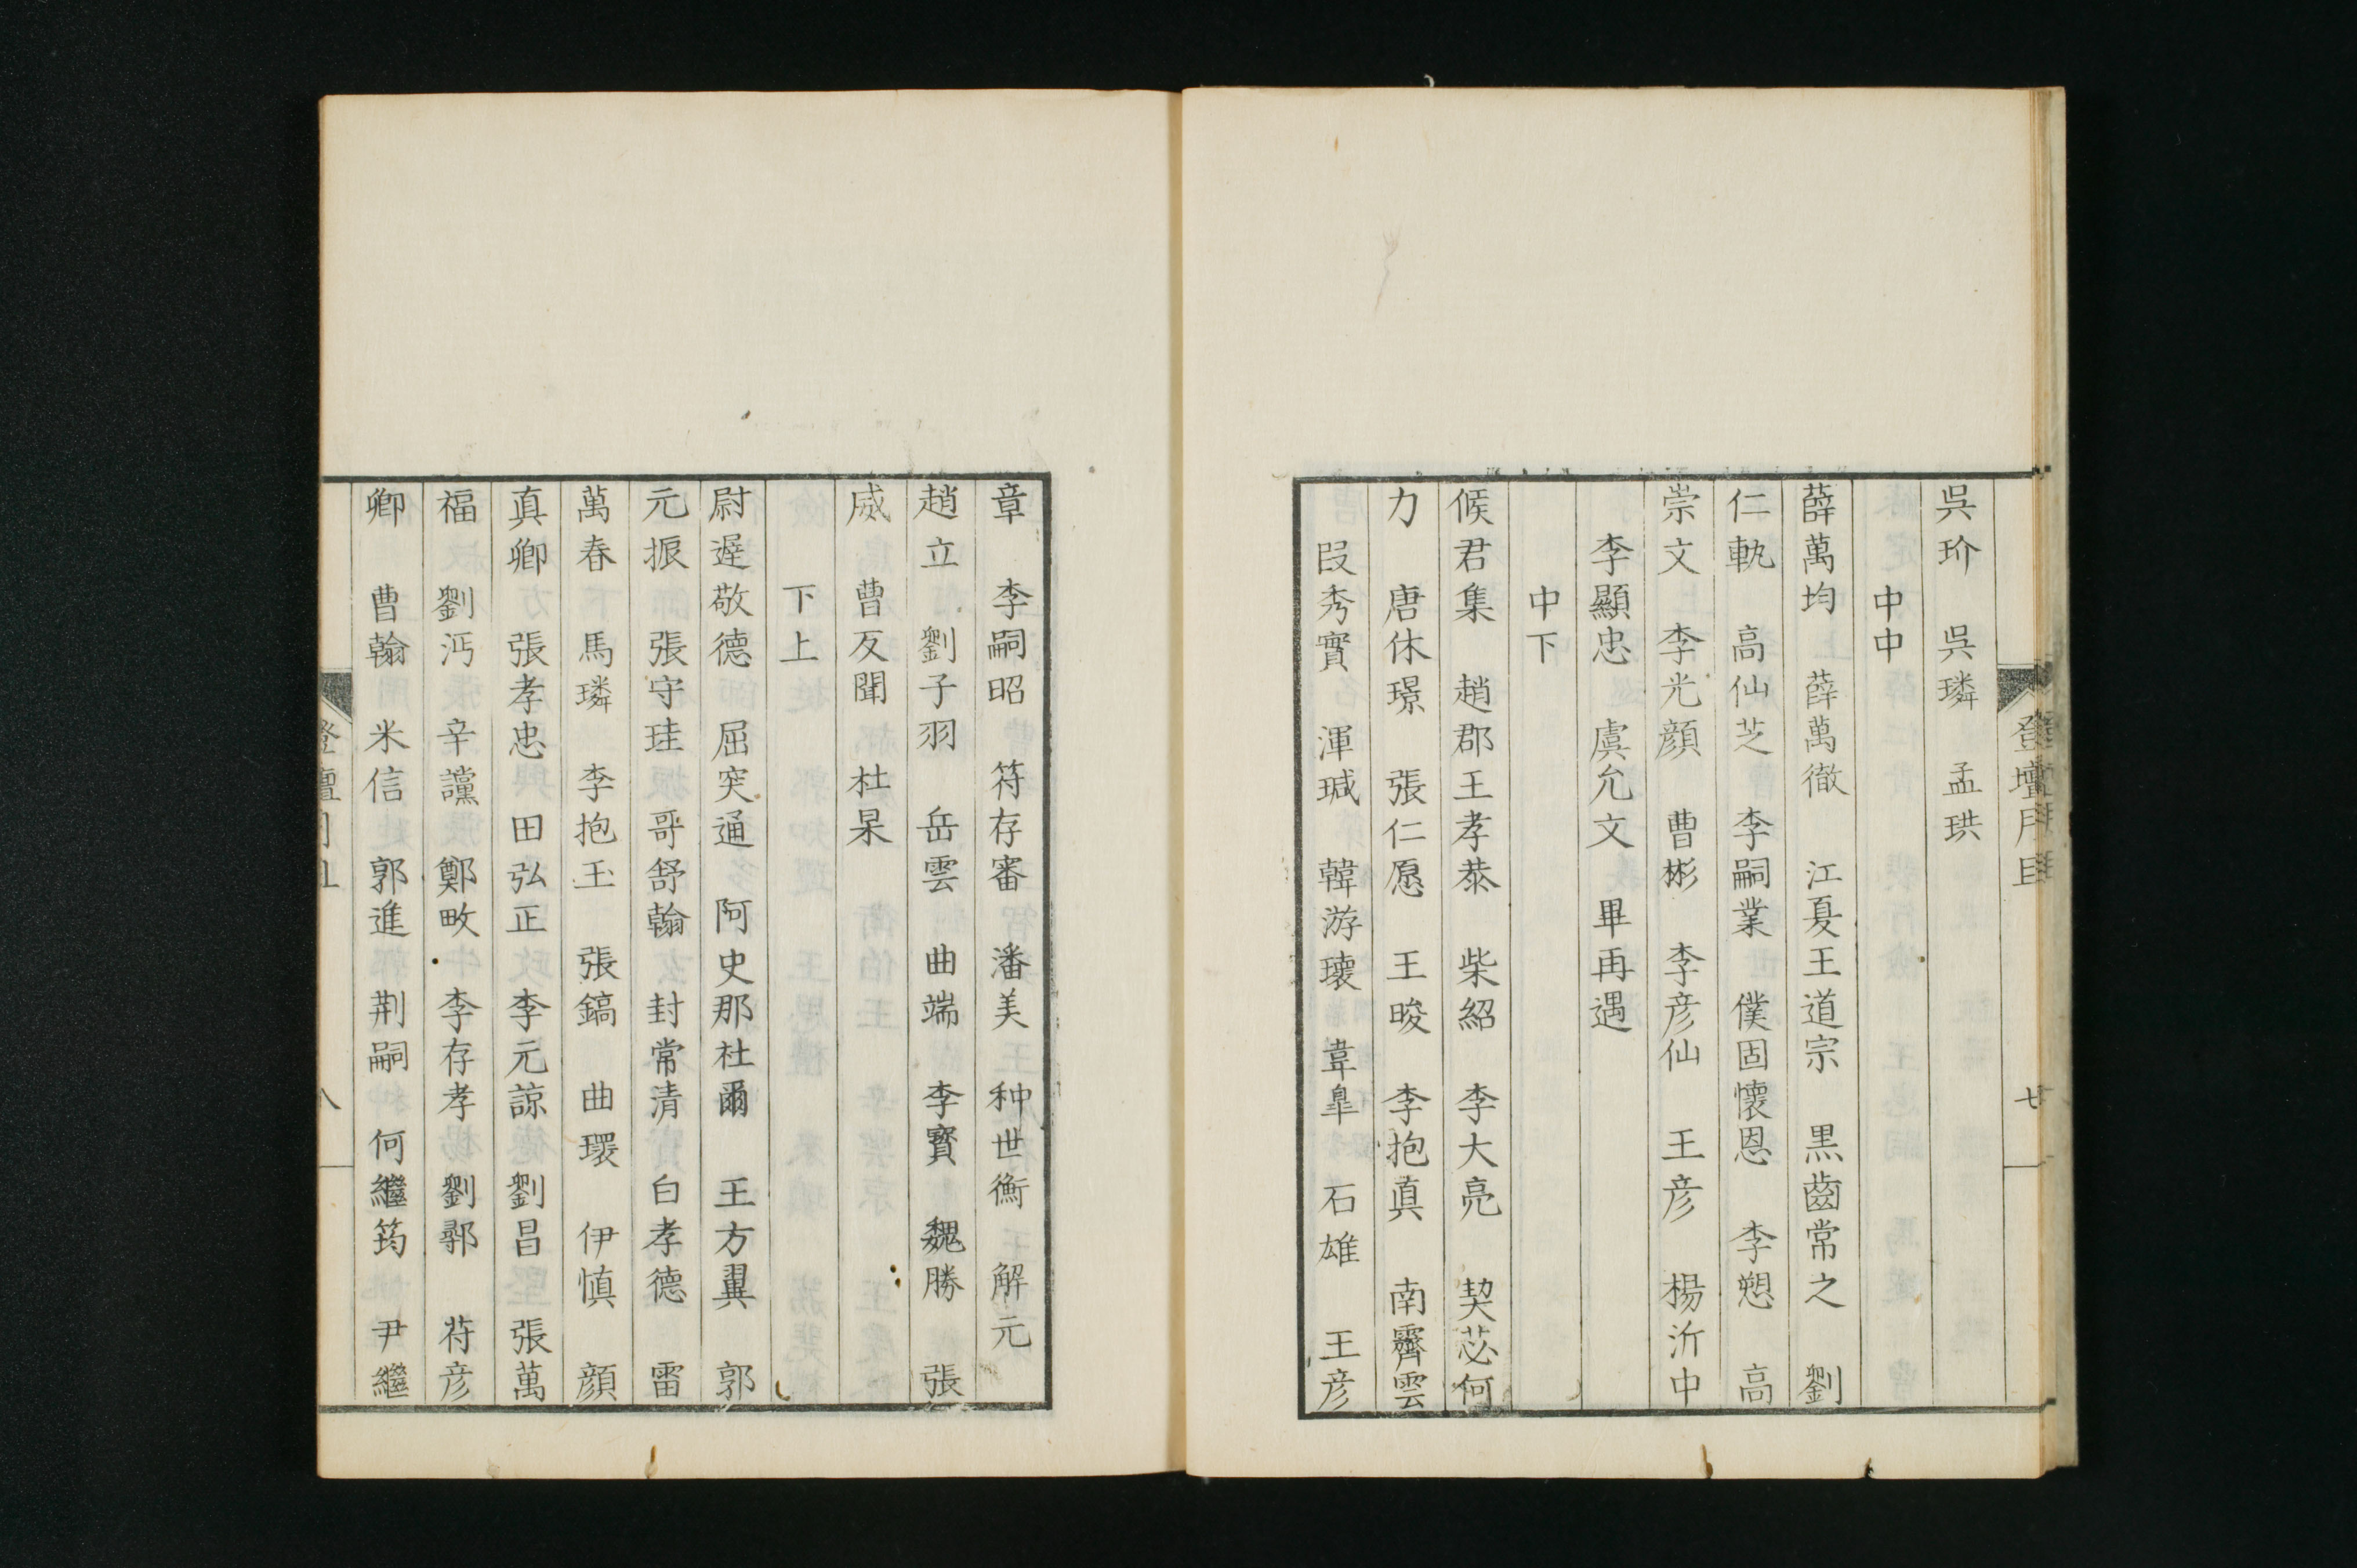 吳玠　吳璘　孟珙
中中
薛萬均　薛萬徹　江夏王道宗　黑齒常之　劉
仁軌　高仙芝　李嗣業　僕固懷恩　李愬　高
崇文　李光顔　曹彬　李彦仙　王彦　楊沂中
李顯忠　虞允文　畢再遇
中下
候君集　趙郡王孝恭　柴紹　李大亮　契苾何
力　唐休璟　張仁愿　王晙　李抱眞　南霽雲
段秀實　渾瑊　韓游瓌　韋臯　石雄　王彦
章　李嗣昭　符存審　潘美　种世衡　解元
趙立　劉子羽　岳雲　曲端　李寳　魏勝　張
威　曹友聞　杜杲
下上
尉遲敬德　屈突通　阿史那社爾　王方翼　郭
元振　張守珪　哥舒翰　封常清　白孝德　雷
萬春　馬璘　李抱玉　張鎬　曲環　伊慎　顔
真卿　張孝忠　田弘正　李元諒　劉昌　張萬
福　劉沔　辛讜　鄭畋　李存孝　劉鄩　符彦
卿　曹翰　米信　郭進　荆嗣　何繼筠　尹繼